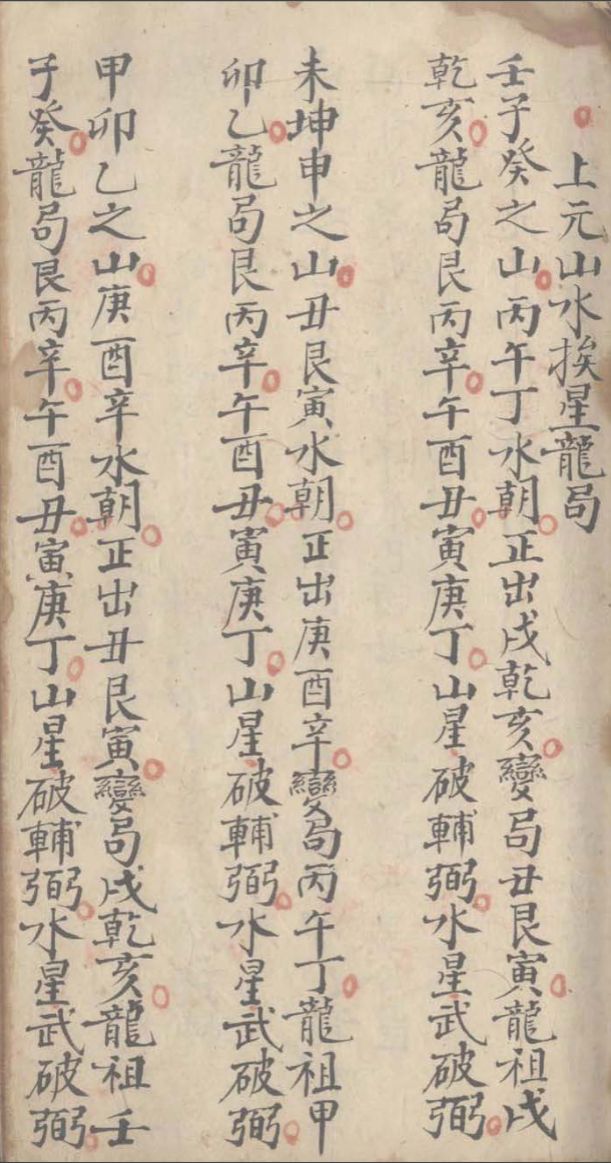 上元山水挨星龍局
壬子癸之山丙午丁水朝正出戌乾亥變局丑艮寅龍祖戌
乾亥龍局艮丙辛午酉丑寅庚丁山星破輔弼水星武破弼
未坤申之山丑艮寅水朝正出庚酉辛變局丙午丁龍祖甲
卯乙龍局艮丙辛午酉丑寅庚丁山星破輔弼水星武破弼
甲卯乙之山庚酉辛水朝正出丑艮寅變局戌乾亥龍祖壬
子癸龍局艮丙辛午酉丑寅庚丁山星破輔弼水星武破弼